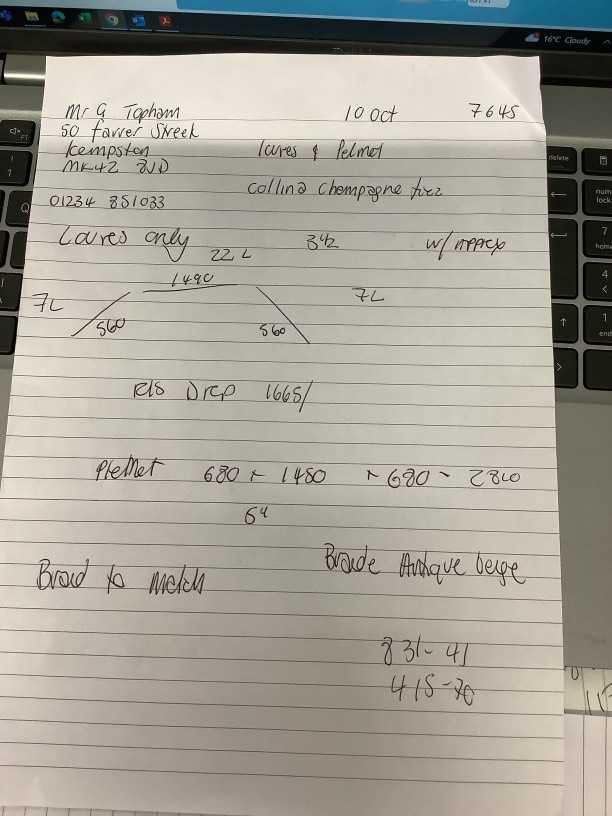 16°C Cloudy
Mr G Topham 10 Oct 7645
50 Farrer Street
Kempston loures & Pelmet
MK42
01234 851033 Collina Champagne
Louvres only 22 L 3½
1490
7L 7L
560 560
R/S Drop 1665/
Plemet 680 + 1480 + 680 - 2840
6"
Braid to Match Braide Antique beige
831-41
415-70
delete
num
lock
7
home
4
1
end